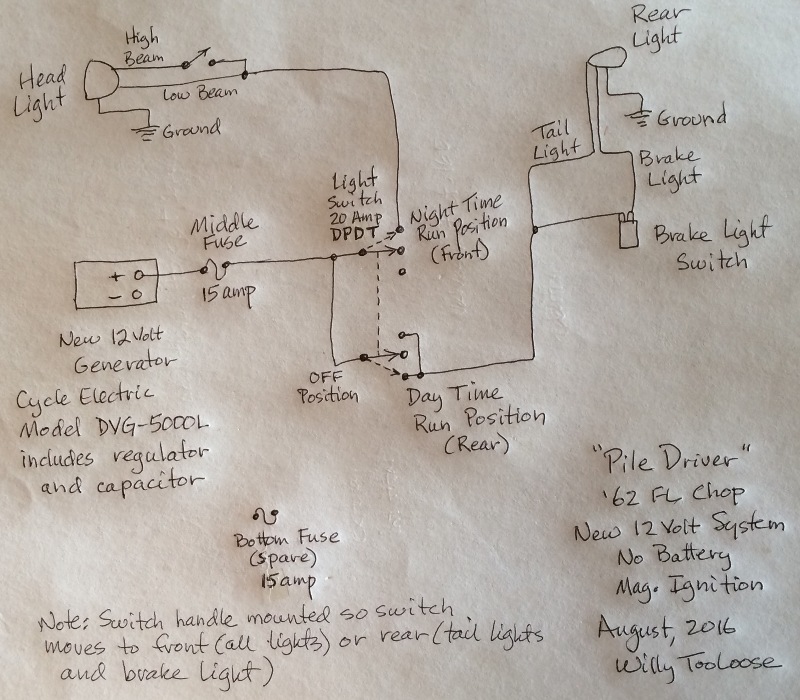 High
Beam
Head
Light
Low Beam
Ground
Rear
Light
Ground
Tail
Light
Brake
Light
Brake Light
Switch
Light
Switch
20 Amp
DPDT
Night Time
Run Position
(Front)
Middle
Fuse
15 amp
+
-
New 12 Volt
Generator
Cycle Electric
Model DVG-5000L
includes regulator
and capacitor
OFF
Position
Day Time
Run Position
(Rear)
Bottom Fuse
(Spare)
15 amp
"Pile Driver"
'62 FL Chop
New 12 Volt System
No Battery
Mag. Ignition
August, 2016
Willy TooLoose
Note: Switch handle mounted so switch
moves to front (all lights) or rear (tail lights
and brake light)